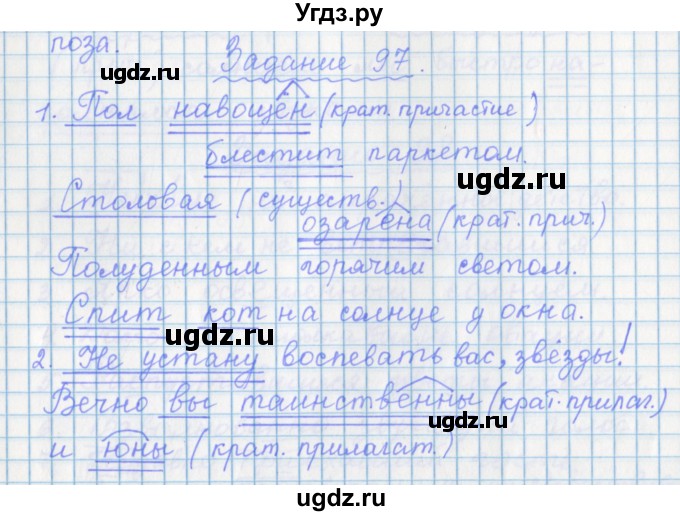 Угдз.ру
поза.
Задание 97.
ugdz.ru
ugdz.ru
1. Пол навощён (крат. причастие)
блестит паркетом.
ugdz.ru
Столовая (существ.)
озарена (крат. прич.)
Полуденным горячим светом.
Спит кот на солнце у окна.
ugdz.ru
2. Не устану воспевать вас, звёзды!
Вечно вы таинственны (крат. прилаг.)
ugdz.ru
и юны (крат. прилагат.)
ugdz.ru